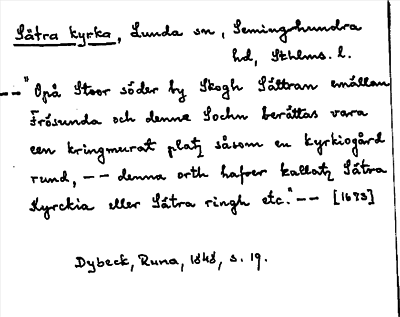 Sätra kyrka, Lunda sn, Seminghundra
hd, Sthlms. l.
-- "Opå Stoor söder by Skogh Sättran emällan
Frösunda och denne Sochn berättas vara
een kringmurat platz såsom en kyrkiogård
rund, -- denna orth hafver kallatz Sätra
Kyrckia eller Sätra ringh etc." -- [1673]
Dybeck, Runa, 1848, s. 19.